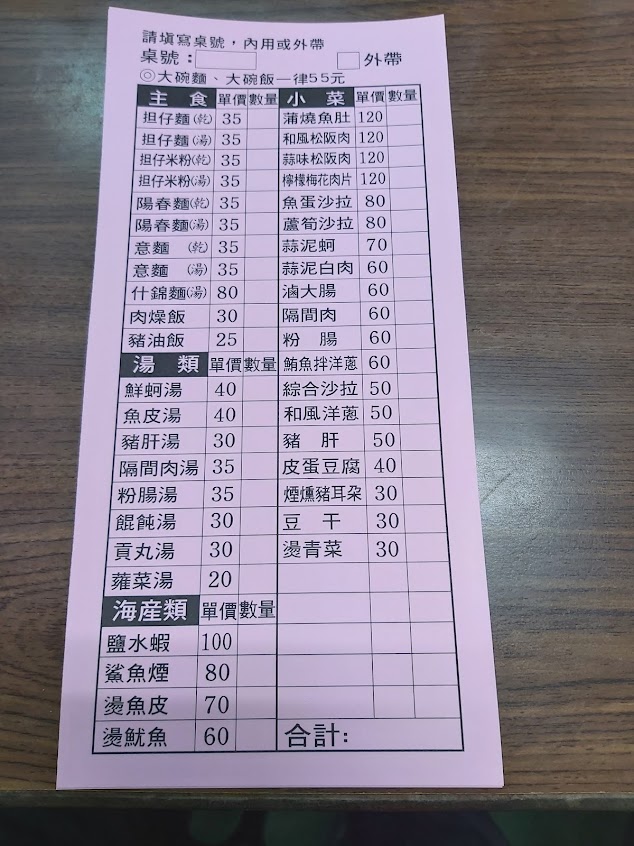 請填寫桌號，內用或外帶
桌號： 外帶
◎大碗麵、大碗飯一律55元
主食 單價 數量
担仔麵(乾) 35
担仔麵(湯) 35
担仔米粉(乾) 35
担仔米粉(湯) 35
陽春麵(乾) 35
陽春麵(湯) 35
意麵(乾) 35
意麵(湯) 35
什錦麵(湯) 80
肉燥飯 30
豬油飯 25
湯類 單價 數量
鮮蚵湯 40
魚皮湯 40
豬肝湯 30
隔間肉湯 35
粉腸湯 35
餛飩湯 30
貢丸湯 30
蕹菜湯 20
海產類 單價 數量
鹽水蝦 100
鯊魚煙 80
燙魚皮 70
燙魷魚 60
小菜 單價 數量
蒲燒魚肚 120
和風松阪肉 120
蒜味松阪肉 120
檸檬梅花肉片 120
魚蛋沙拉 80
蘆筍沙拉 80
蒜泥蚵 70
蒜泥白肉 60
滷大腸 60
隔間肉 60
粉腸 60
鮪魚拌洋蔥 60
綜合沙拉 50
和風洋蔥 50
豬肝 50
皮蛋豆腐 40
煙燻豬耳朵 30
豆干 30
燙青菜 30
合計：